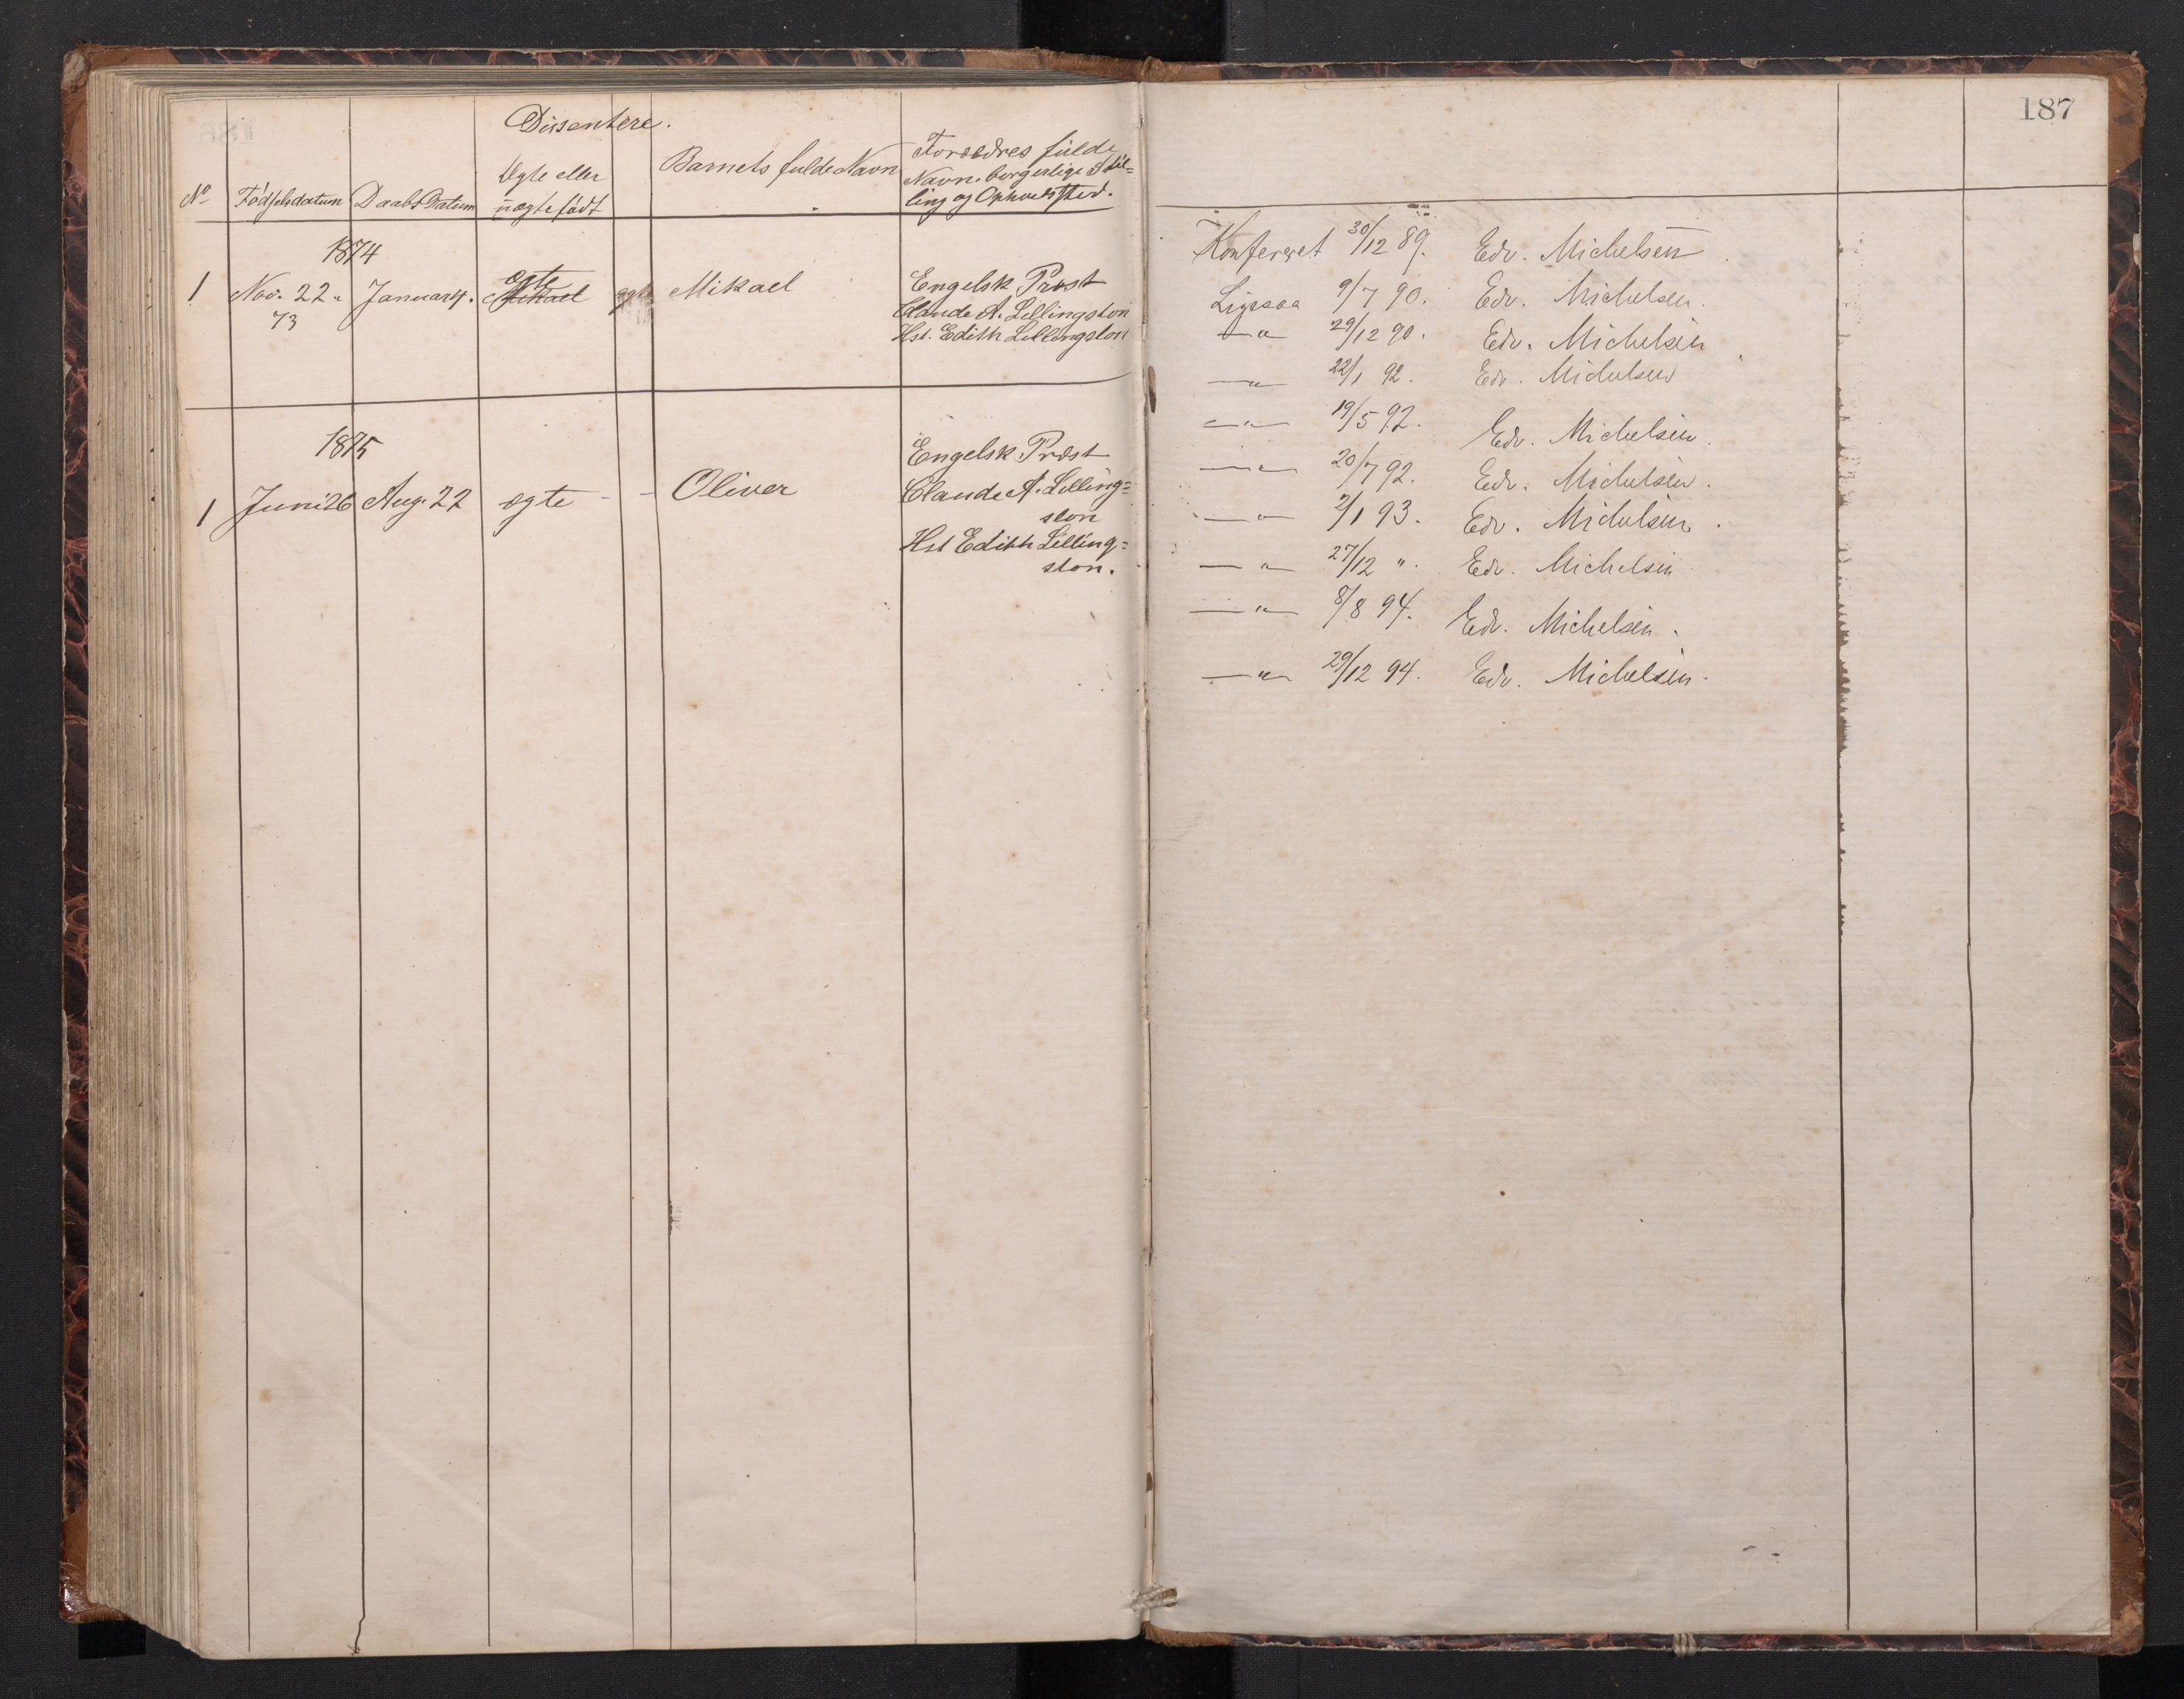 Dissentere.
No
Fødselsdatum
Daabs Datum
Ægte eller
uægte født
Barnets fulde Navn
Forældres fulde
Navn. borgerlige Stil-
ling og Opholdssted.
1874
1 Nov. 22. Januar 4. ægte Mikael ægte Mikael
73
Engelsk Præst
Claude A. Lillingston
Hst. Edith Lillingston
1875
1 Juni 26 Aug. 22 ægte - - Oliver
Engelsk Præst
Claude A. Lilling=
ston
Hst Edith Lilling=
ston.
187
Konfereret 30/12 89. Edv. Michelsen
Ligesaa 9/7 90. Edv. Michelsen.
—"— 29/12 90. Edv. Michelsen
—"— 22/1 92. Edv. Michelsen
—"— 19/5 92. Edv. Michelsen.
—"— 20/7 92. Edv. Michelsen.
—"— 2/1 93. Edv. Michelsen.
—"— 27/12 ". Edv. Michelsen
—"— 8/8 94. Edv. Michelsen.
—"— 29/12 94. Edv. Michelsen.